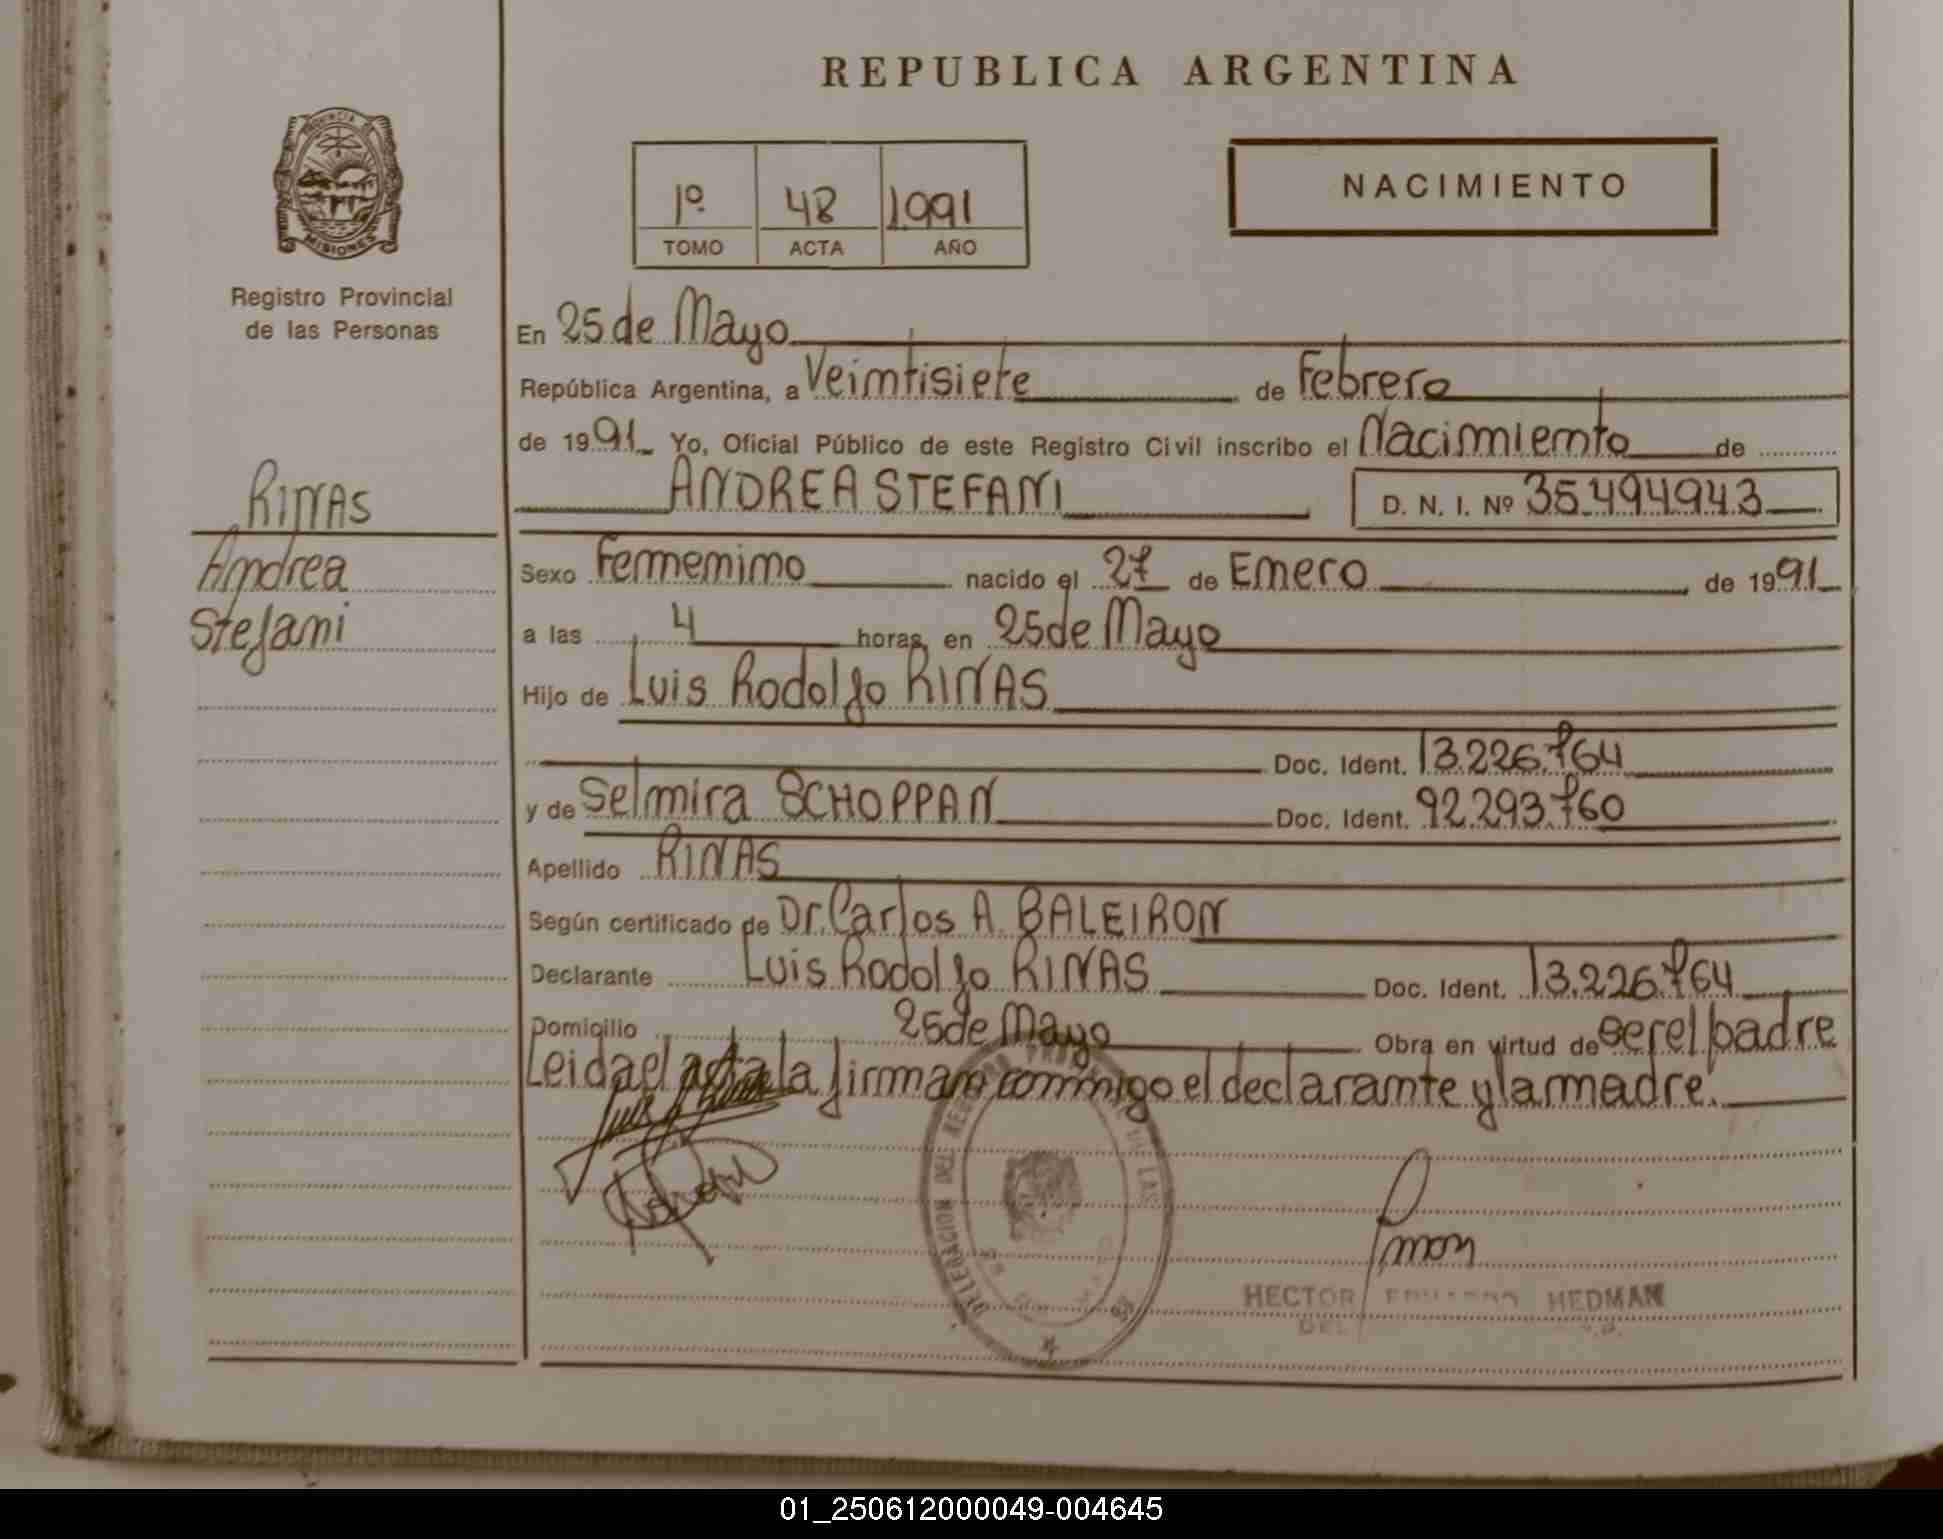 REPUBLICA ARGENTINA
PROVINCIA DE
MISIONES
Registro Provincial
de las Personas
1º 48 1.991
TOMO ACTA AÑO
NACIMIENTO
En 25 de Mayo
República Argentina, a Veimtisiete de Febrero
de 1991 Yo, Oficial Público de este Registro Civil inscribo el Nacimiemto de
ANDREA STEFANI D. N. I. Nº 35.494.943
RINAS
Andrea
Stefani
Sexo Femmemimo nacido el 27 de Emero de 1991
a las 4 horas, en 25 de Mayo
Hijo de Luis Rodolfo RINAS
Doc. Ident. 13.226.764
y de Selmira SCHOPPAN Doc. Ident. 92.293.760
Apellido RINAS
Según certificado de Dr. Carlos A. BALEIRON
Declarante Luis Rodolfo RINAS Doc. Ident. 13.226.764
Domicilio 25 de Mayo Obra en virtud de ser el padre
Leida el acta la firmam commigo el declaramte y la madre.
DELEGACION DEL REGISTRO DE LAS
HECTOR HEDMAN
01_250612000049-004645